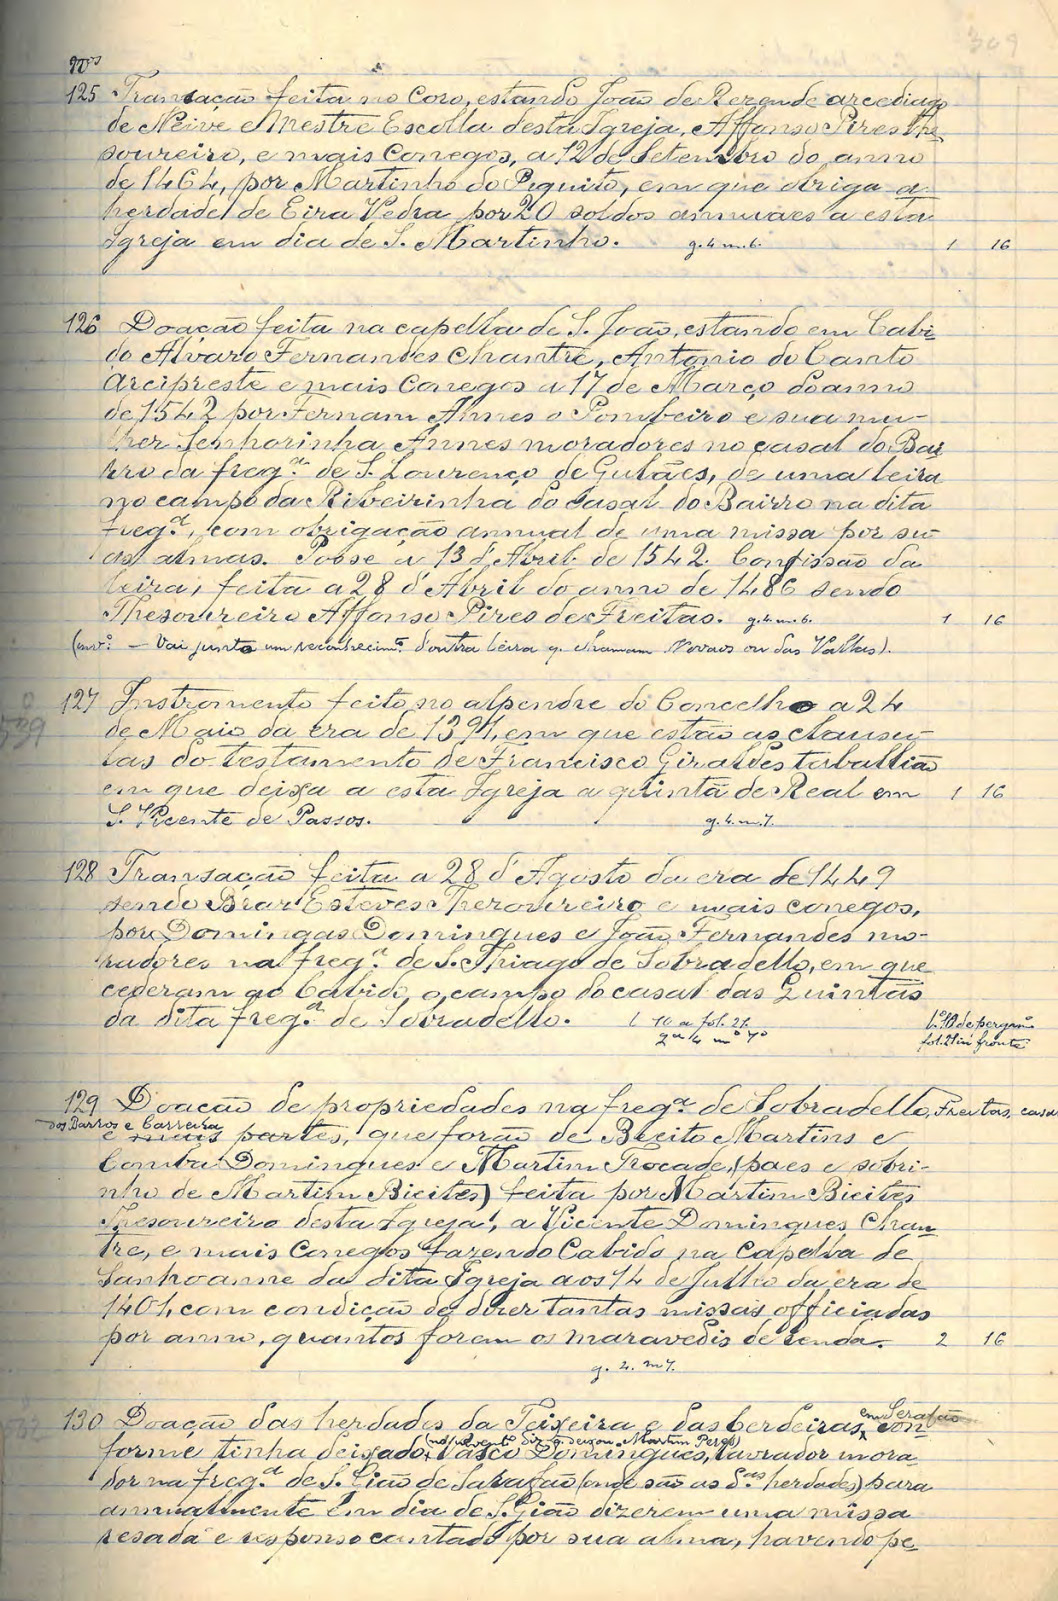 309
Nos
125 Transação feita no Coro, estando João de Rezende arcediago
de Neive e Mestre Escolla desta Igreja, Affonso Pires The
soureiro, e mais Conegos, a 12 de Setembro do anno
de 1464, por Martinho do Piquito, em que obriga a
herdade de Eira Vedra por 20 soldos annuaes a esta
Igreja em dia de S. Martinho. g. 4. m. 6. 1 16
126 Doação feita na capella de S. João, estando em Cabi-
do Alvaro Fernandes Chantre, Antonio do Canto
Arcipreste e mais Conegos a 17 de Março do anno
de 1542 por Fernam Annes o Pombeiro e sua mu-
lher Senhorinha Annes moradores no casal do Bai
rro da freg.ª de S. Lourenço de Gulães, de uma leira
no campo da Ribeirinha do Casal do Bairro na dita
freg.ª, com obrigação annual de uma missa por su-
as almas. Posse a 13 d'Abril de 1542. Confissão da
leira, feita a 28 d'Abril do anno de 1486 sendo
Thesoureiro Affonso Pires de Freitas. g. 4. m. 6. 1 16
– Vai junto um reconhecim.to d'outra leira q. chamam Novaos ou das Vallas).
127 Instromento feito no alpendre do Concelho a 24
de Maio da era de 1391, em que estão as clausu-
las do testamento de Francisco Giraldes taballião
em que deixa a esta Igreja a quintã de Real em 1 16
S. Vicente de Passos. g. 4. m. 7.
539
128 Transação feita a 28 d'Agosto da era de 1449
sendo Braz Esteves Thezoureiro e mais conegos,
por Domingas Domingues e João Fernandes mo-
radores na freg.ª de S. Thiago de Sobradello, em que
cederam ao Cabido, o campo do casal das Quintãs
da dita freg.ª de Sobradello. l 10 a fol. 21. L.º 10 de pergam.º
g.ta 4 m.º 7º fol. 21 in fronte
129 Doacão de propriedades na freg.ª de Sobradello, Freitas, casa
dos Barros e Carreira
e mais partes, que forão de Bieito Martins e
Comba Domingues e Martim Trocade, (paes e sobri-
nho de Martim Bieites) feita por Martim Bieites
Thesoureiro desta Igreja, a Vicente Domingues Chan
tre, e mais Conegos fazendo Cabido na Capella de
Sanhoanne da dita Igreja aos 14 de Julho da era de
1401, com condição de dizer tantas missas officiadas
por anno, quantos forem os maravedis de renda. 2 16
g. 4. m 7.
130 Doação das herdades da Teixeira e das Cerdeiras, em Serafão con
forme tinha deixado, Vasco Domingues, lavrador mora
dor na freg.ª de S. Gião de Sarafão (onde são as d.as herdades) para
annualmente em dia de S. Gião dizerem uma missa
resada e responso cantado por sua alma, havendo pe